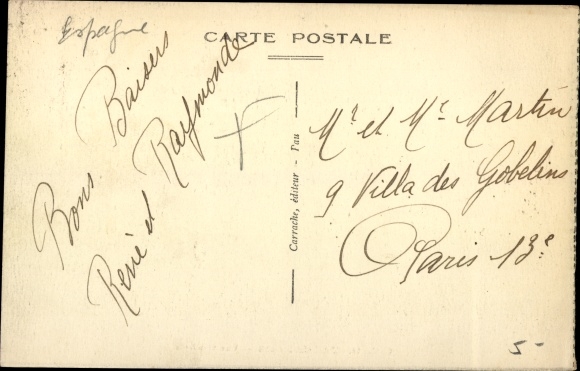 Espagne
CARTE POSTALE
Bons Baisers
René et Raymonde
Carrache, éditeur - Pau
Mr et Mr Martin
9 Villa des Gobelins
Paris 13e
5 -